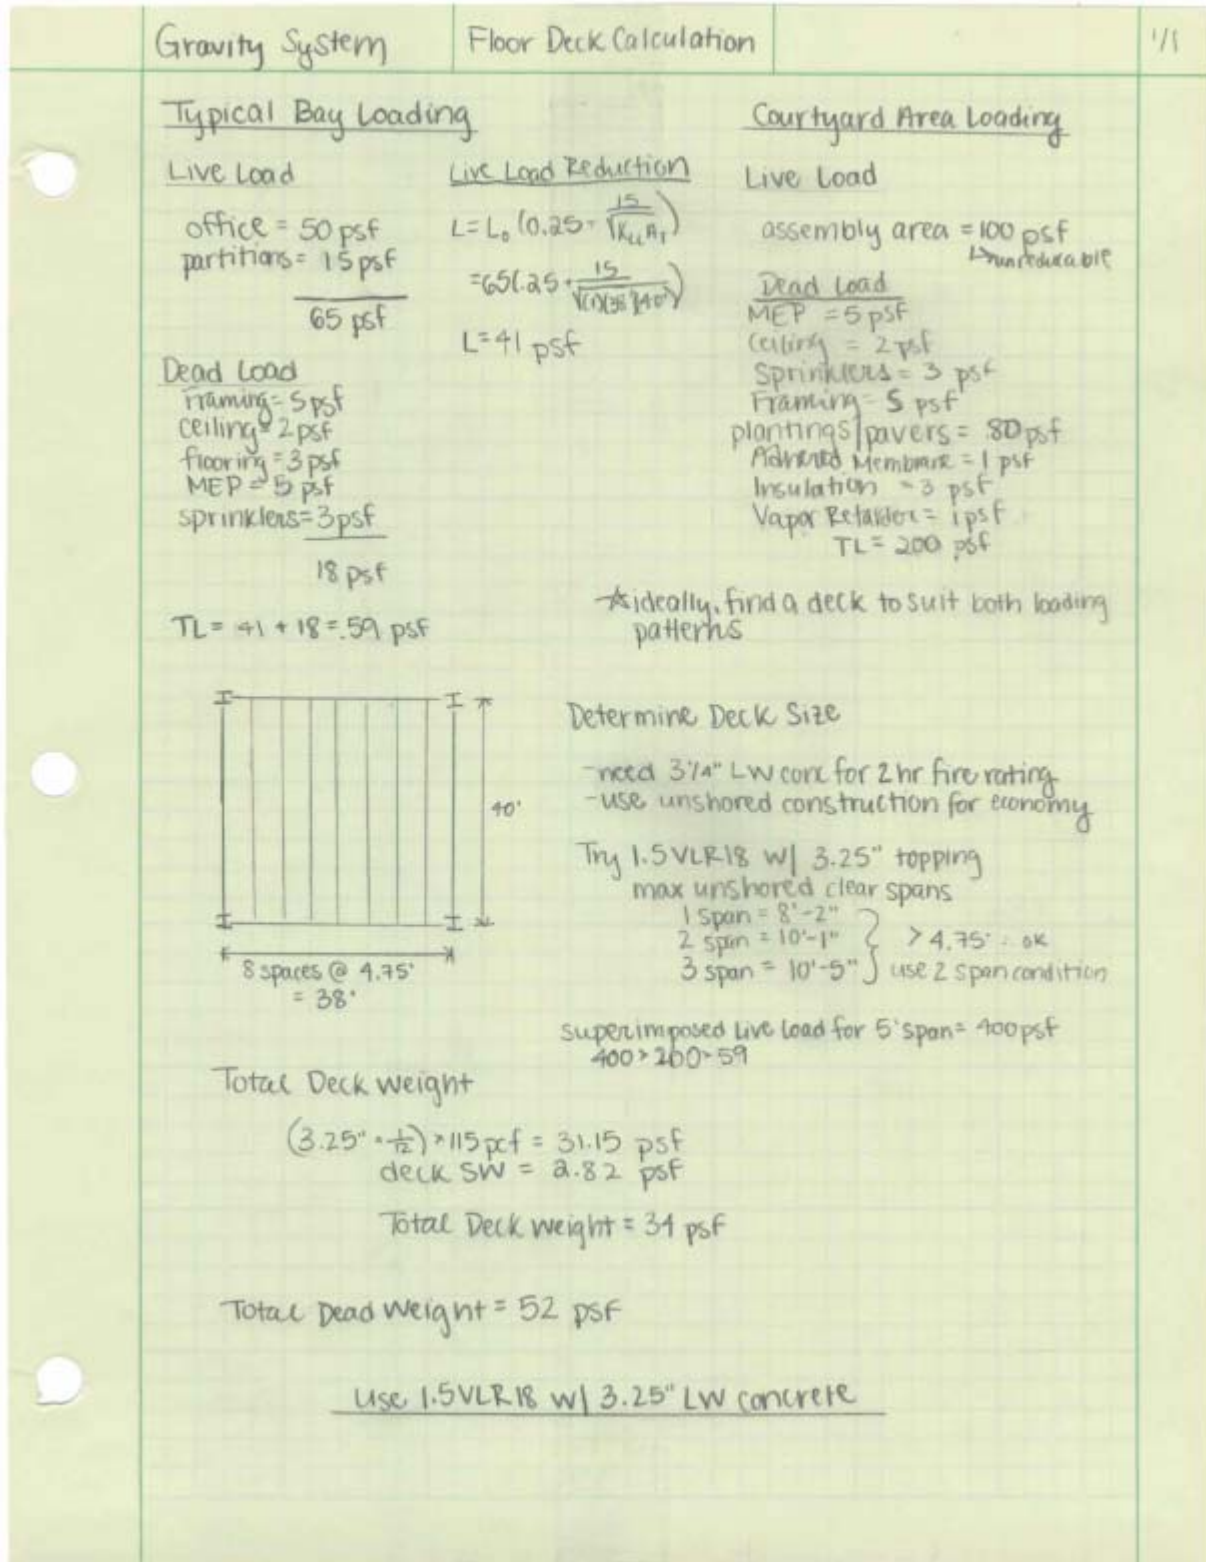 Gravity System
Floor Deck Calculation
1/1
Typical Bay Loading
Live Load
office = 50 psf
partitions = 15 psf
65 psf
Dead Load
Framing = 5 psf
ceiling = 2 psf
flooring = 3 psf
MEP = 5 psf
sprinklers = 3 psf
18 psf
TL = 41 + 18 = 59 psf
Live Load Reduction
L = L₀ (0.25 + 15/√(K_LL A_T))
= 65(.25 + 15/√((1)(38')(40')))
L = 41 psf
Courtyard Area Loading
Live Load
assembly area = 100 psf
↳ unreducable
Dead Load
MEP = 5 psf
Ceiling = 2 psf
Sprinklers = 3 psf
Framing = 5 psf
plantings/pavers = 80 psf
Adhered Membrane = 1 psf
Insulation = 3 psf
Vapor Retarder = 1 psf
TL = 200 psf
☆ ideally, find a deck to suit both loading
patterns
40'
8 spaces @ 4.75'
= 38'
Determine Deck Size
- need 3 1/4" LW conc for 2 hr fire rating
- use unshored construction for economy
Try 1.5VLR18 w/ 3.25" topping
max unshored clear spans
1 span = 8'-2"
2 span = 10'-1" > 4.75' ∴ ok
3 span = 10'-5" use 2 span condition
superimposed Live Load for 5' span = 400 psf
400 > 200 > 59
Total Deck Weight
(3.25" × 1/12) × 115 pcf = 31.15 psf
deck SW = 2.82 psf
Total Deck Weight = 34 psf
Total Dead Weight = 52 psf
Use 1.5VLR18 w/ 3.25" LW concrete